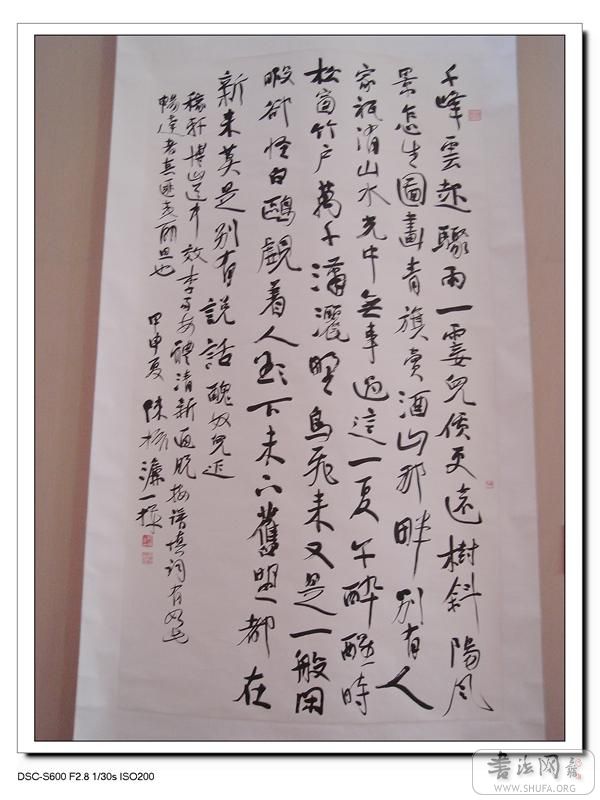 千峰雲起驟雨一霎兒價更遠樹斜陽風
景怎生圖畫青旗賣酒山那畔別有人
家祇消山水光中無事過這一夏午醉醒時
松窗竹户萬千瀟灑野鳥飛來又是一般閑
暇卻怪白鷗覷着人欲下未下舊盟都在
新來莫是別有説話醜奴兒近
稼軒博山道中效李易安體清新通脱按譜填詞有如此
暢達者真匪夷所思也 甲申夏 陳振濂一揮
DSC-S600 F2.8 1/30s ISO200
書法网
WWW.SHUFA.ORG